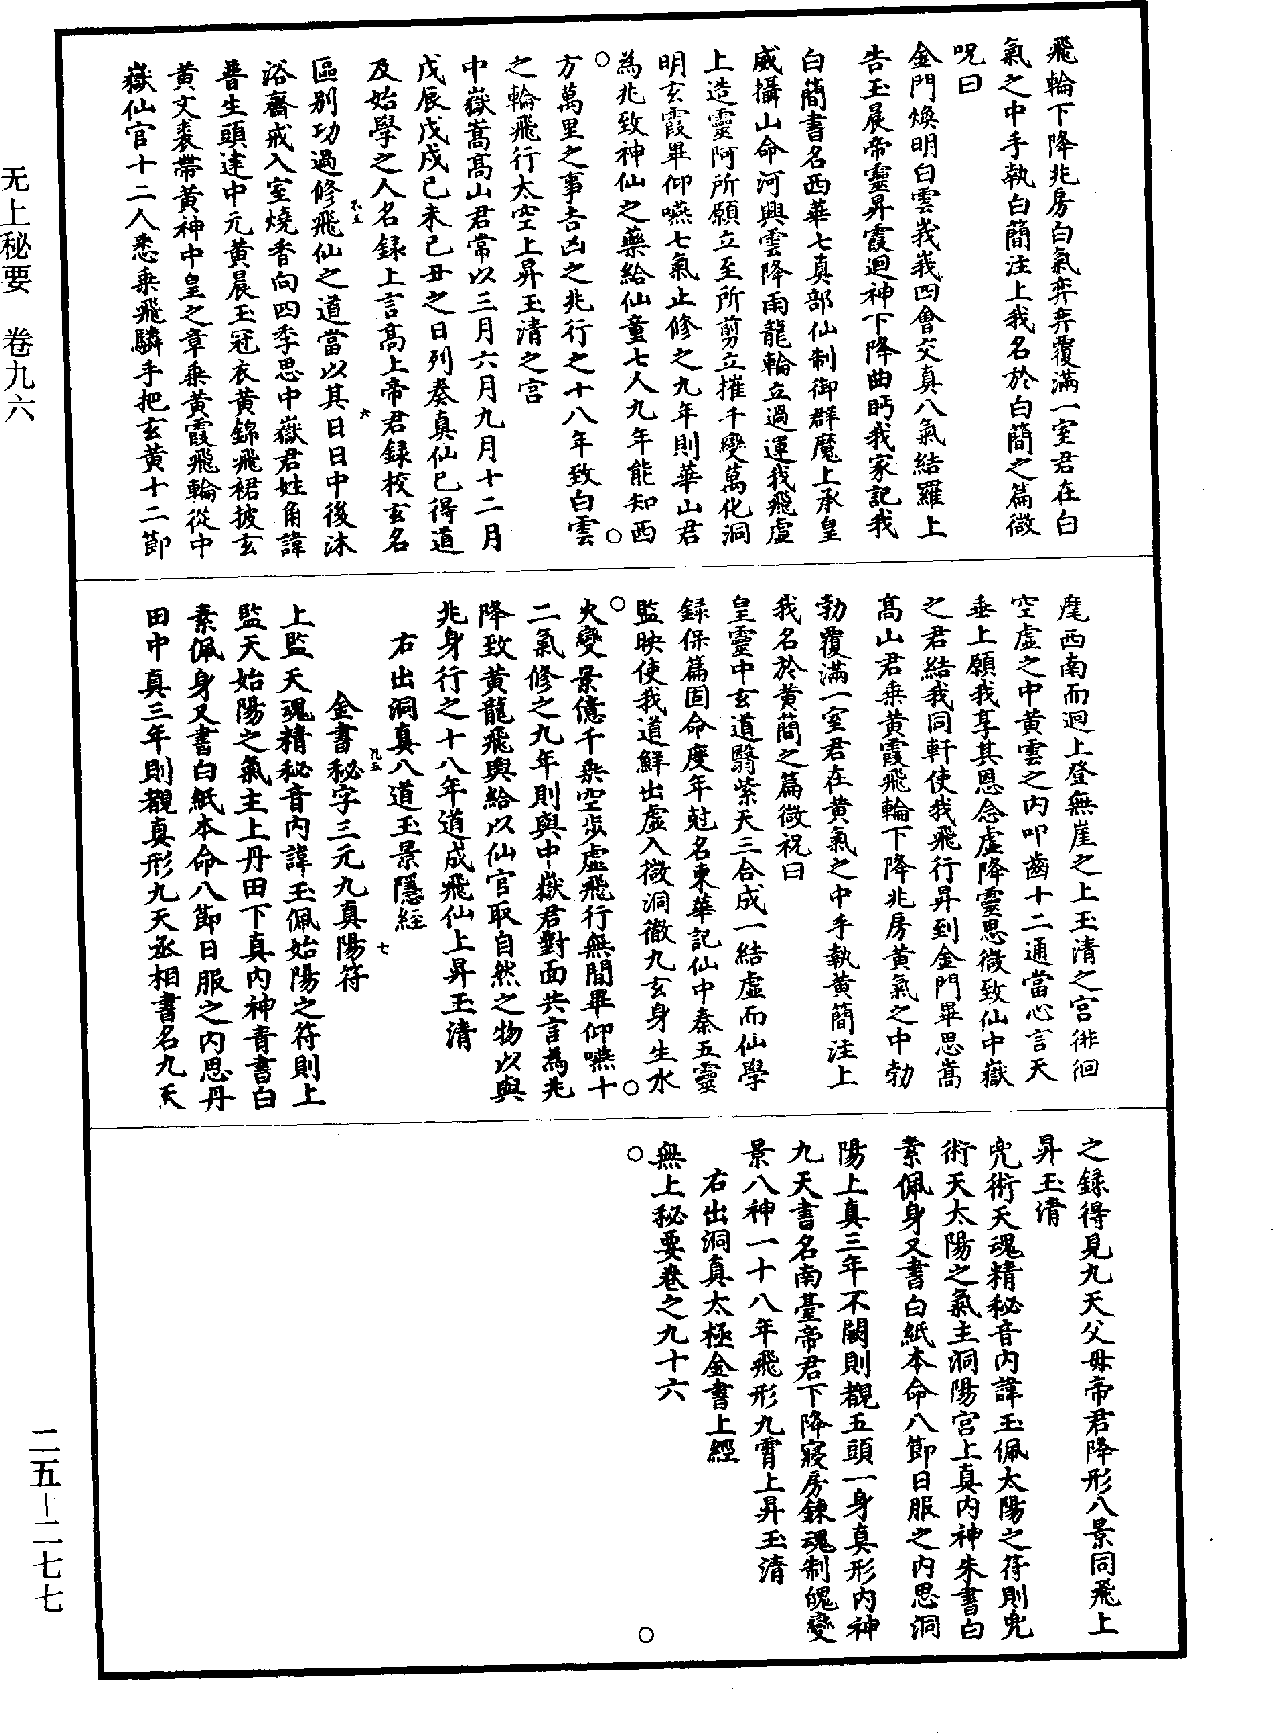 无上秘要　卷九六
飛輪下降兆房白氣弈弈覆滿一室君在白
氣之中手執白簡注上我名於白簡之篇微
呪曰
金門煥明白雲峩峩四會交真八氣結羅上
告玉晨帝靈昇霞迴神下降曲眄我家記我
白簡書名西華七真部仙制御群魔上承皇
威攝山命河興雲降雨龍輪立過運我飛虛
上造靈阿所願立至所剪立摧千變萬化洞
明玄霞畢仰嚥七氣止修之九年則華山君
為兆致神仙之藥給仙童七人九年能知西
方萬里之事吉凶之兆行之十八年致白雲
之輪飛行太空上昇玉清之宮
中嶽嵩高山君常以三月六月九月十二月
戊辰戊戌己未己丑之日列奏真仙已得道
及始學之人名錄上言高上帝君錄校玄名
區別功過修飛仙之道當以其日日中後沐
浴齋戒入室燒香向四季思中嶽君姓角諱
普生頭達中元黃晨玉冠衣黃錦飛裙披玄
黃文裘帶黃神中皇之章乘黃霞飛輪從中
嶽仙官十二人悉乘飛驎手把玄黃十二節
麾西南而迴上登無崖之上玉清之宮徘徊
空虛之中黃雲之內叩齒十二通當心言天
垂上願我享其恩念虛降靈思微致仙中嶽
之君結我同軒使我飛行昇到金門畢思嵩
高山君乘黃霞飛輪下降兆房黃氣之中勃
勃覆滿一室君在黃氣之中手執黃簡注上
我名於黃簡之篇微祝曰
皇靈中玄道翳紫天三合成一結虛而仙學
錄保篇固命度年尅名東華記仙中秦五靈
監映使我道鮮出虛入微洞徹九玄身生水
火變景億千乘空步虛飛行無間畢仰嚥十
二氣修之九年則與中嶽君對面共言為兆
降致黃龍飛輿給以仙官取自然之物以與
兆身行之十八年道成飛仙上昇玉清
右出洞真八道玉景隱經
金書秘字三元九真陽符
上監天魂精秘音內諱玉佩始陽之符則上
監天始陽之氣主上丹田下真內神青書白
素佩身又書白紙本命八節日服之內思丹
田中真三年則覩真形九天丞相書名九天
之錄得見九天父母帝君降形八景同飛上
昇玉清
兜術天魂精秘音內諱玉佩太陽之符則兜
術天太陽之氣主洞陽宮上真內神朱書白
素佩身又書白紙本命八節日服之內思洞
陽上真三年不闕則覩五頭一身真形內神
九天書名南臺帝君下降寢房鍊魂制魄變
景八神一十八年飛形九霄上昇玉清
右出洞真太極金書上經
無上秘要卷之九十六
二五—二七七